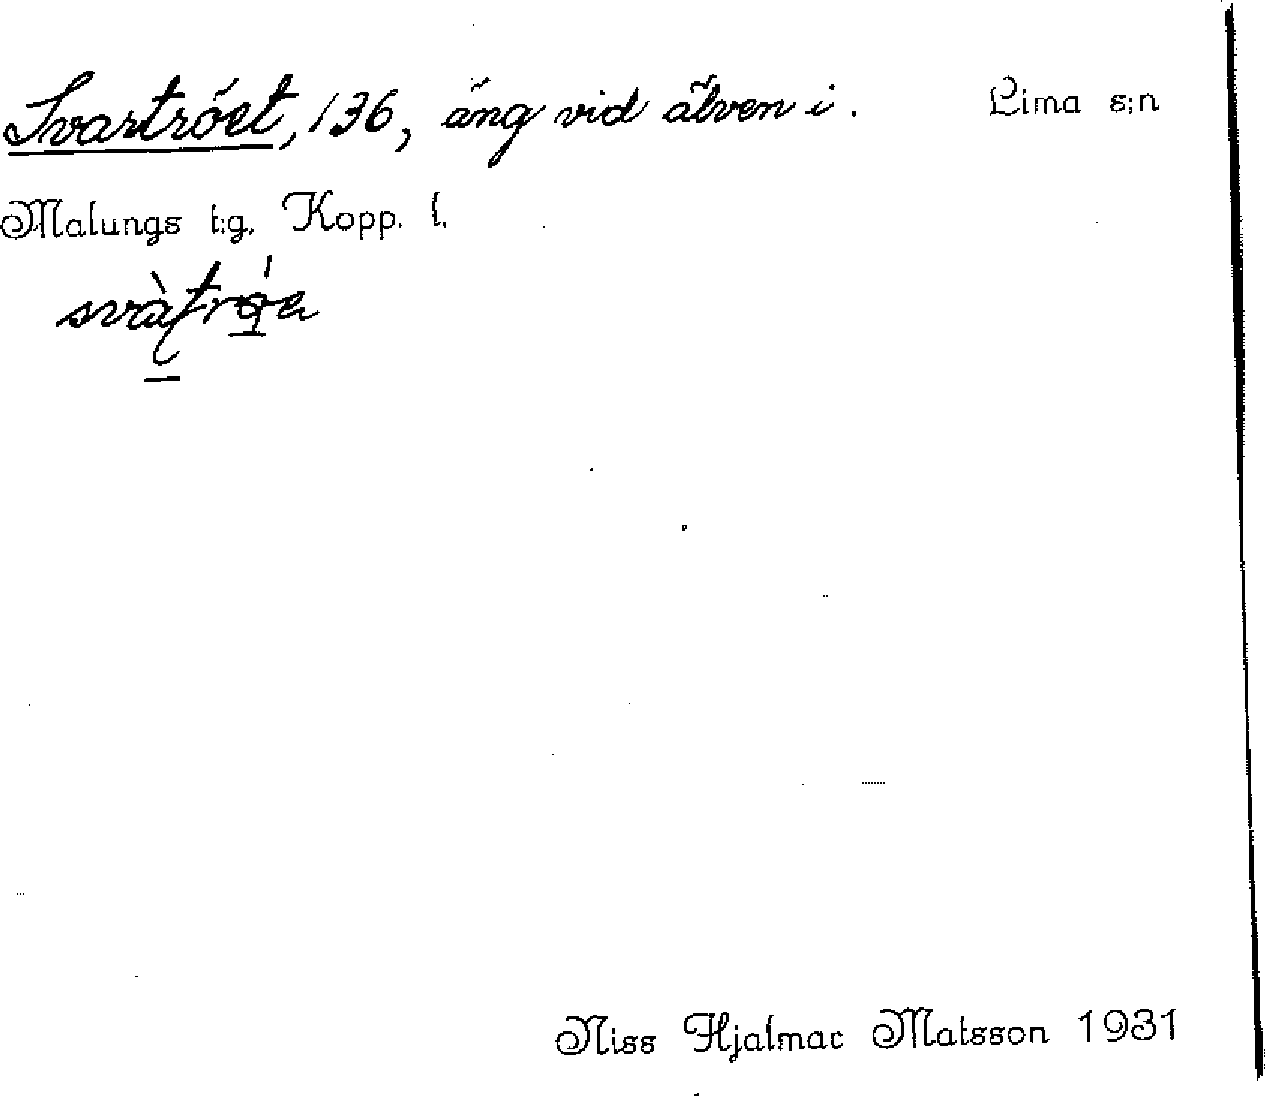 Svartróet, 136, äng vid älven i. Lima s:n
Malungs t:g. Kopp. l.
Niss Hjalmar Matsson 1931